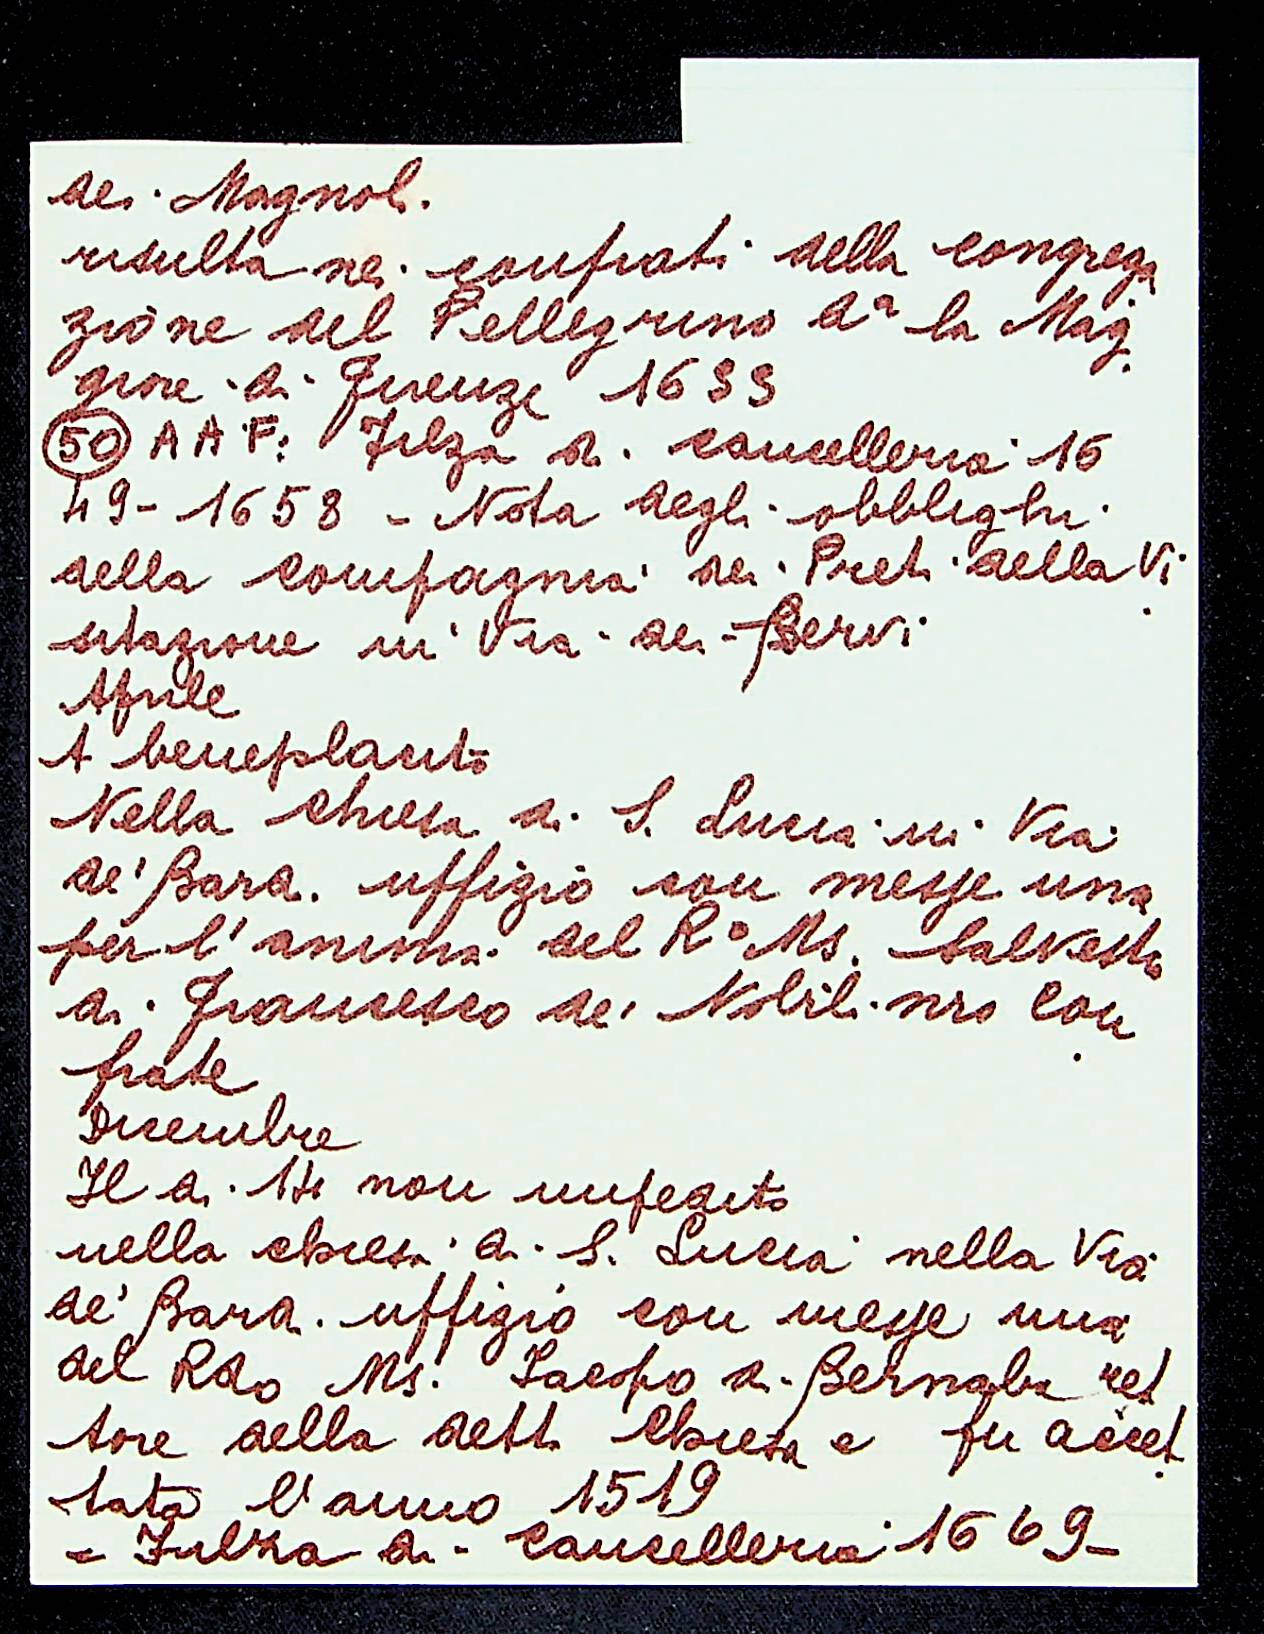 dei Magnoli.
risulta nei confrati della congrega
zione del Pellegrino da la Mag
giore di Firenze 1633
50 A A F: Filza di cancelleria 16
49- 1658 - Nota degli obblighi
della compagnia dei Preti della Vi
sitazione in Via dei Servi
Aprile
A beneplacito
Nella chiesa di S. Lucia in Via
de' Bardi uffizio con messe una
per l'anima del Rº Ms. Salvestro
di Francesco dei Nobili nro con
frate
Dicembre
Il di 14 non impedito
nella chiesa di S. Lucia nella Via
de' Bardi uffizio con messe una
del Rdo Ms. Iacopo di Bernaba ret
tore della detta chiesa e fu accet
tata l'anno 1519
- Filza di cancelleria 1669-